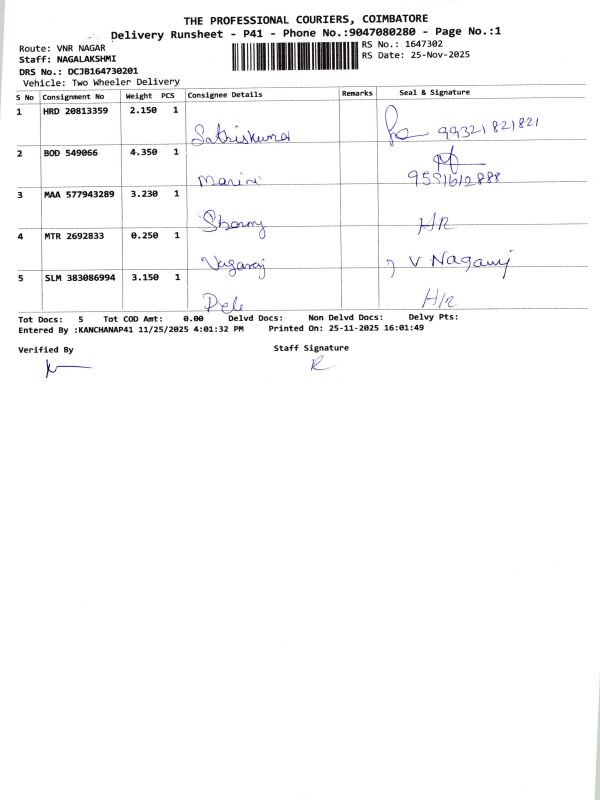 THE PROFESSIONAL COURIERS, COIMBATORE
Delivery Runsheet - P41 - Phone No.:9047080280 - Page No.:1
Route: VNR NAGAR
RS No.: 1647302
Staff: NAGALAKSHMI
RS Date: 25-Nov-2025
DRS No.: DCJB164730201
Vehicle: Two Wheeler Delivery
S No Consignment No Weight PCS Consignee Details Remarks Seal & Signature
1 HRD 20813359 2.150 1
Sathiskumar 99321 821 821
2 BOD 549066 4.350 1
9591612888
3 MAA 577943289 3.230 1
H/R
4 MTR 2692833 0.250 1
Nagaraj V Nagaraj
5 SLM 383086994 3.150 1
H/R
Tot Docs: 5 Tot COD Amt: 0.00 Delvd Docs: Non Delvd Docs: Delvy Pts:
Entered By :KANCHANAP41 11/25/2025 4:01:32 PM Printed On: 25-11-2025 16:01:49
Verified By
Staff Signature